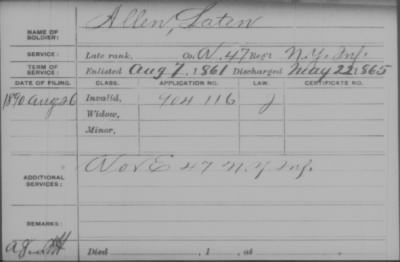 NAME OF SOLDIER: Allen, Laten
SERVICE: Late rank, Co. N. 47 Reg't N.Y. Inf.
TERM OF SERVICE: Enlisted Aug 7, 1861 Discharged May 22, 1865
DATE OF FILING. CLASS. APPLICATION NO. LAW. CERTIFICATE NO.
1890 Aug 26 Invalid, 904 116 J
Widow,
Minor,
ADDITIONAL SERVICES: E 47 N.Y. Inf.
REMARKS:
Died , 1 , at